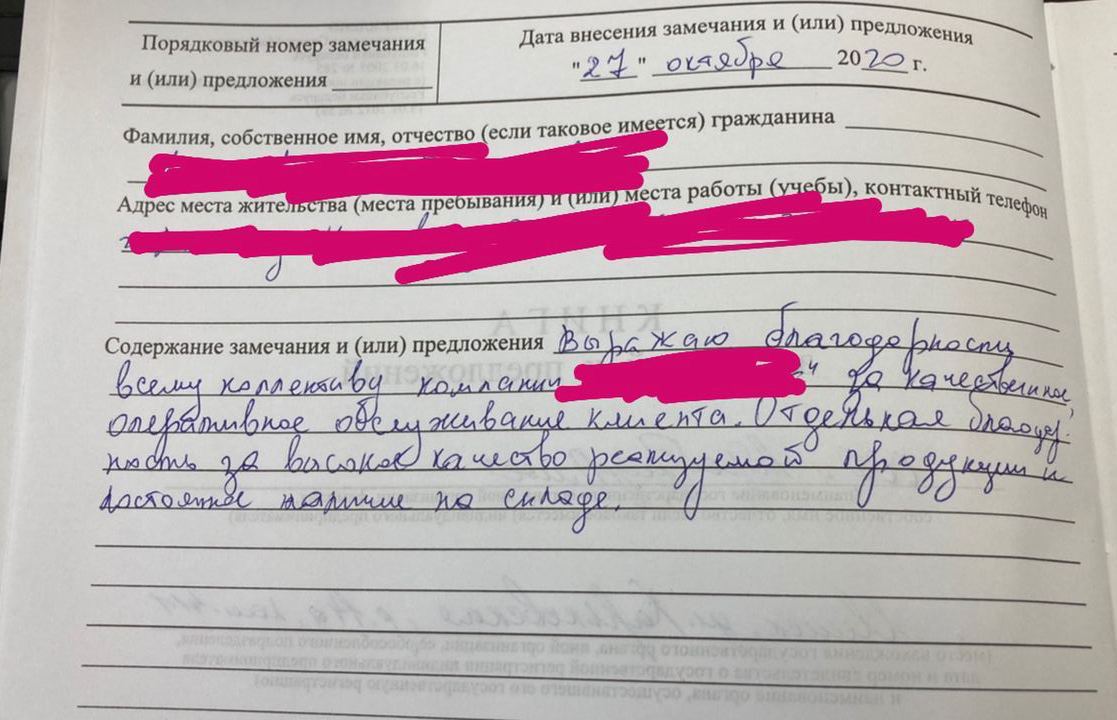 Порядковый номер замечания
и (или) предложения
Дата внесения замечания и (или) предложения
"27" октября 2020 г.
Фамилия, собственное имя, отчество (если таковое имеется) гражданина
Адрес места жительства (места пребывания) и (или) места работы (учебы), контактный телефон
КНИГА
Содержание замечания и (или) предложения Выражаю благодарность
всему коллективу компании " за качественное,
оперативное обслуживание клиента. Отдельная благодар-
ность за высокое качество реализуемой продукции и
постоятное наличие на складе.